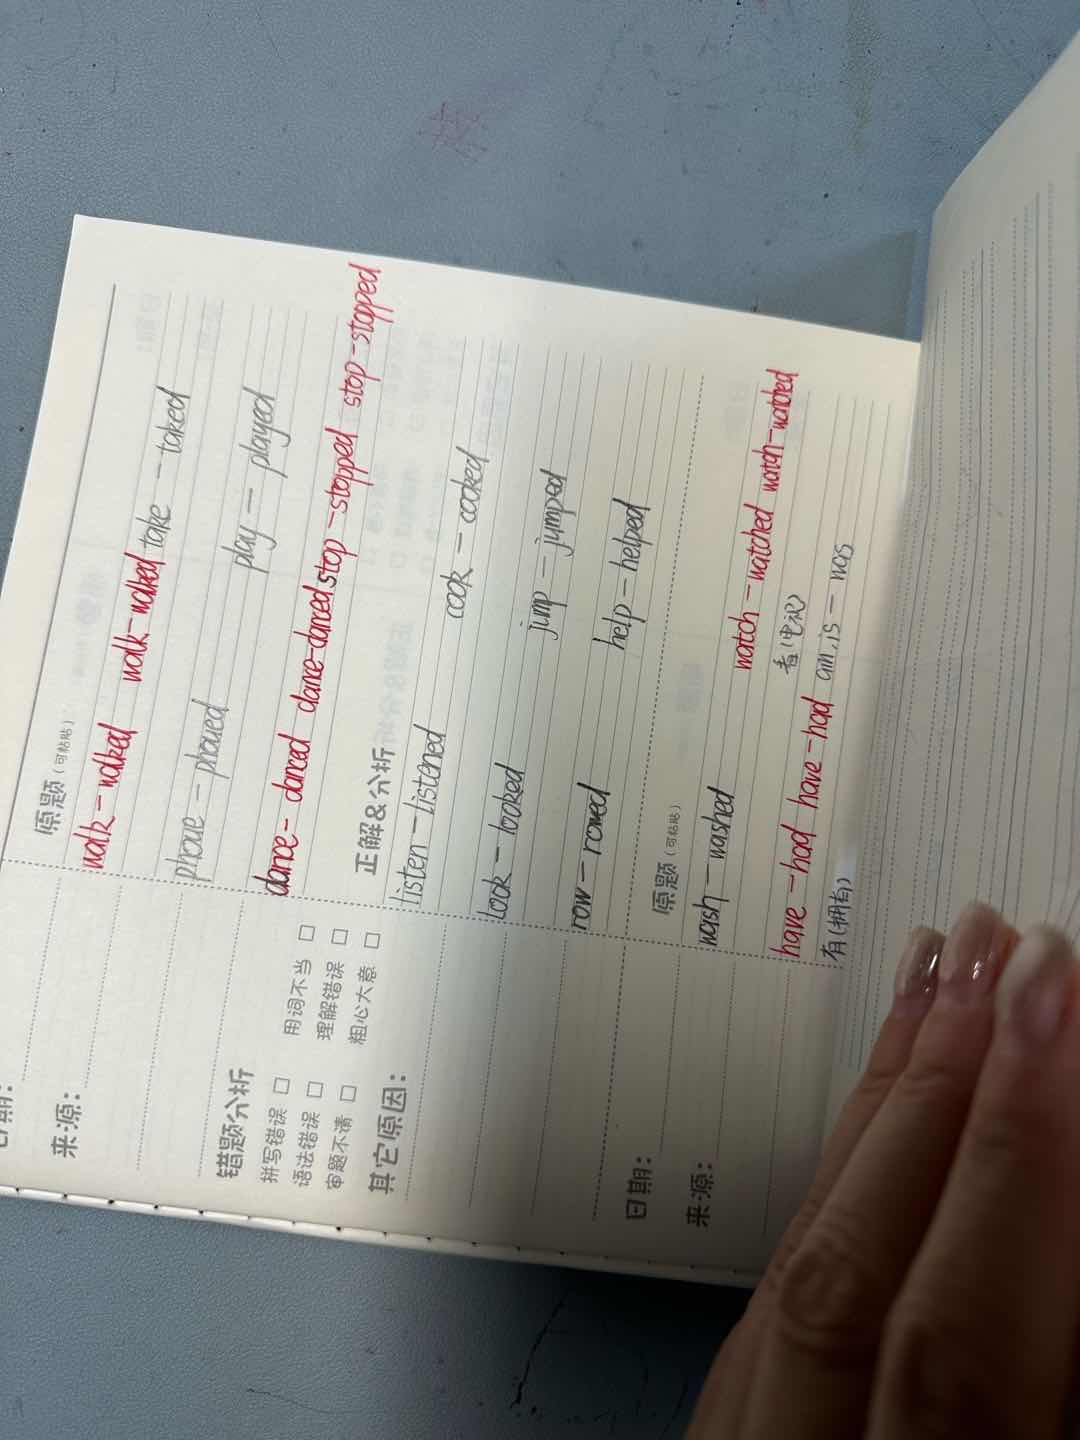 日期：
来源：
原题（可粘贴）
walk-walked walk-walked take-taked
phone-phoned play-played
dance-danced dance-danced stop-stopped stop-stopped
错题分析
拼写错误 □ 用词不当 □
语法错误 □ 理解错误 □
审题不清 □ 粗心大意 □
其它原因：
正解&分析
listen-listened cook-cooked
look-looked jump-jumped
row-rowed help-helped
日期：
来源：
原题（可粘贴）
wash-washed watch-watched watch-watched
看(电视)
have-had have-had am.is-was
有(拥有)